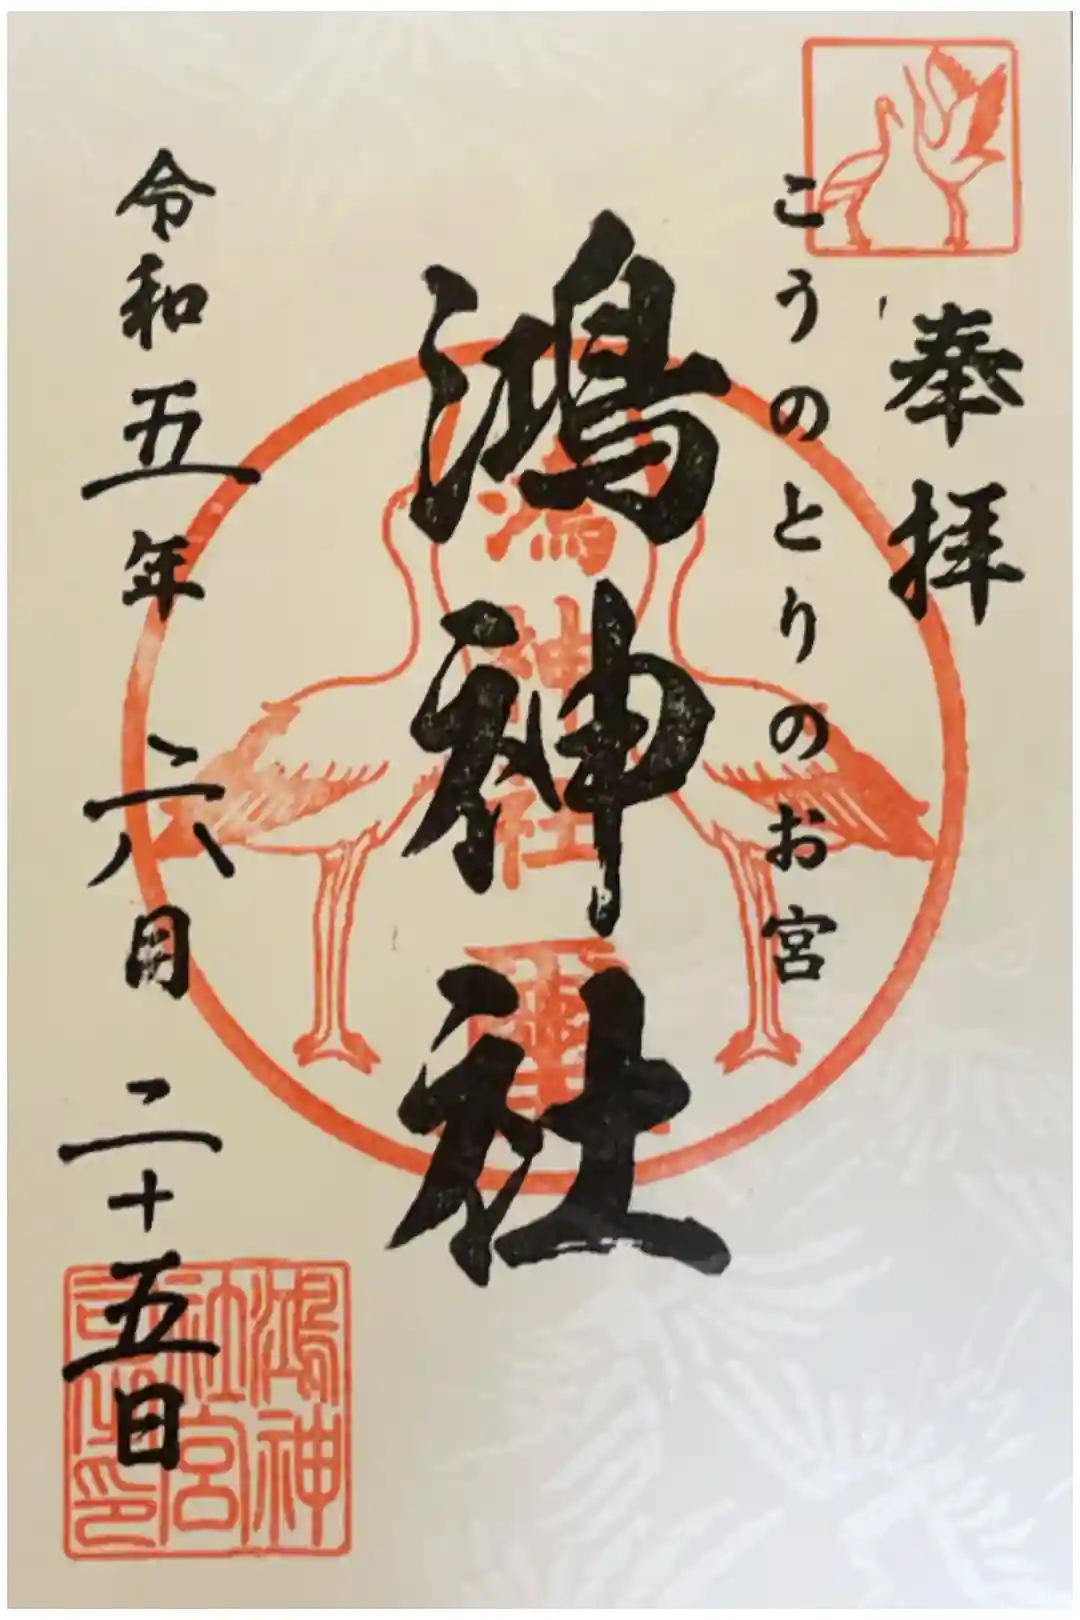 奉拝
こうのとりのお宮
鴻神社
鴻神社
令和五年 六月 二十五日
鴻神
社宮
司之印